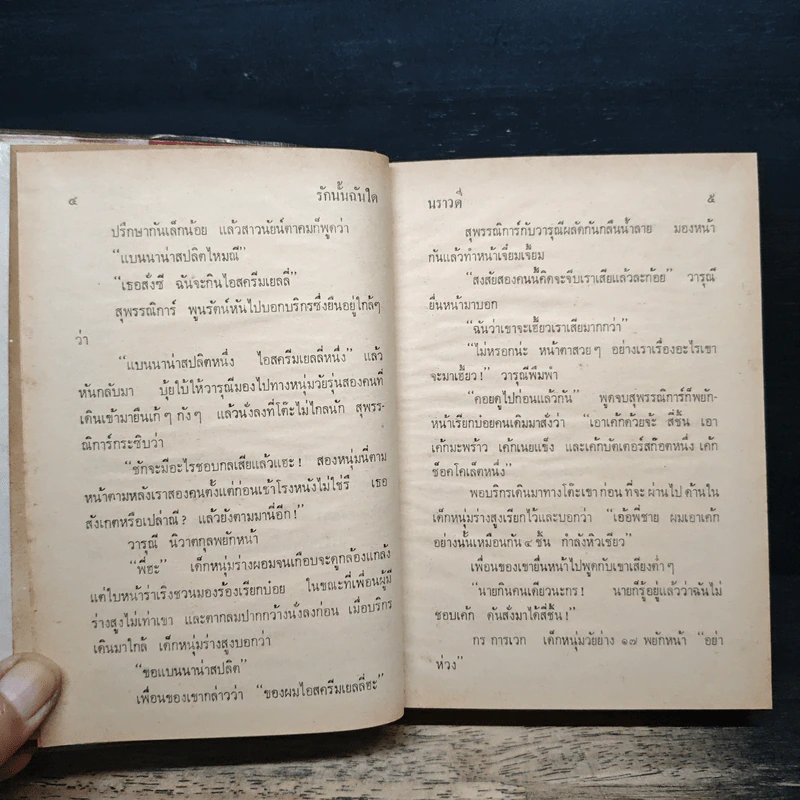 ๔
รักนั้นฉันใด
ปรึกษากันเล็กน้อย แล้วสาวนัยน์ตาคมก็พูดว่า
“แบนนาน่าสปลิตไหมณี”
“เธอสั่งซี ฉันจะกินไอสครีมเยลลี่”
สุพรรณิการ์ พูนรัตน์หันไปบอกบริกรซึ่งยืนอยู่ใกล้ๆ
ว่า
“แบนนาน่าสปลิตหนึ่ง ไอสครีมเยลลี่หนึ่ง” แล้ว
หันกลับมา บุ้ยใบ้ให้วารุณีมองไปทางหนุ่มวัยรุ่นสองคนที่
เดินเข้ามายืนเก้ๆ กังๆ แล้วนั่งลงที่โต๊ะไม่ไกลนัก สุพร-
ณิการ์กระซิบว่า
“ชักจะมีอะไรชอบกลเสียแล้วแฮะ! สองหนุ่มนี่ตาม
หน้าตามหลังเราสองคนตั้งแต่ก่อนเข้าโรงหนังไม่ใช่รึ เธอ
สังเกตหรือเปล่าณี? แล้วยังตามมานี่อีก!”
วารุณี นิวาตกุลพยักหน้า
“พี่ฮะ” เด็กหนุ่มร่างผอมจนเกือบจะดูกล้องแกล้ง
แต่ใบหน้าร่าเริงชวนมองร้องเรียกบ๋อย ในขณะที่เพื่อนผู้มี
ร่างสูงไม่เท่าเขา และตากลมปากกว้างนั่งลงก่อน เมื่อบริกร
เดินมาใกล้ เด็กหนุ่มร่างสูงบอกว่า
“ขอแบนนาน่าสปลิต”
เพื่อนของเขากล่าวว่า “ของผมไอสครีมเยลลี่ฮะ”
นราวดี
๕
สุพรรณิการ์กับวารุณีผลัดกันกลืนน้ำลาย มองหน้า
กันแล้วทำหน้าเจี๋ยมเจี้ยม
“สงสัยสองคนนี้คิดจะจีบเราเสียแล้วละก้อย” วารุณี
ยื่นหน้ามาบอก
“ฉันว่าเขาจะเฮี้ยวเราเสียมากกว่า”
“ไม่หรอกน่ะ หน้าตาสวยๆ อย่างเราเรื่องอะไรเขา
จะมาเฮี้ยว!” วารุณีพึมพำ
“คอยดูไปก่อนแล้วกัน” พูดจบสุพรรณิการ์ก็พยัก-
หน้าเรียกบ๋อยคนเดิมมาสั่งว่า “เอาเค้กด้วยจ้ะ สี่ชิ้น เอา
เค้กมะพร้าว เค้กเนยแข็ง และเค้กบัตเตอร์สก๊อตหนึ่ง เค้ก
ช็อคโคเล็ตหนึ่ง”
พอบริกรเดินมาทางโต๊ะเขา ก่อน ที่จะ ผ่านไป ด้านใน
เด็กหนุ่มร่างสูงเรียกไว้และบอกว่า “เอ้อพี่ชาย ผมเอาเค้ก
อย่างนั้นเหมือนกัน ๔ ชิ้น กำลังหิวเชียว”
เพื่อนของเขายื่นหน้าไปพูดกับเขาเสียงต่ำๆ
“นายกินคนเดียวนะกร! นายก็รู้อยู่แล้วว่าฉันไม่
ชอบเค้ก ดันสั่งมาได้สี่ชิ้น!”
กร การเวก เด็กหนุ่มวัยย่าง ๑๗ พยักหน้า “อย่า
ห่วง”